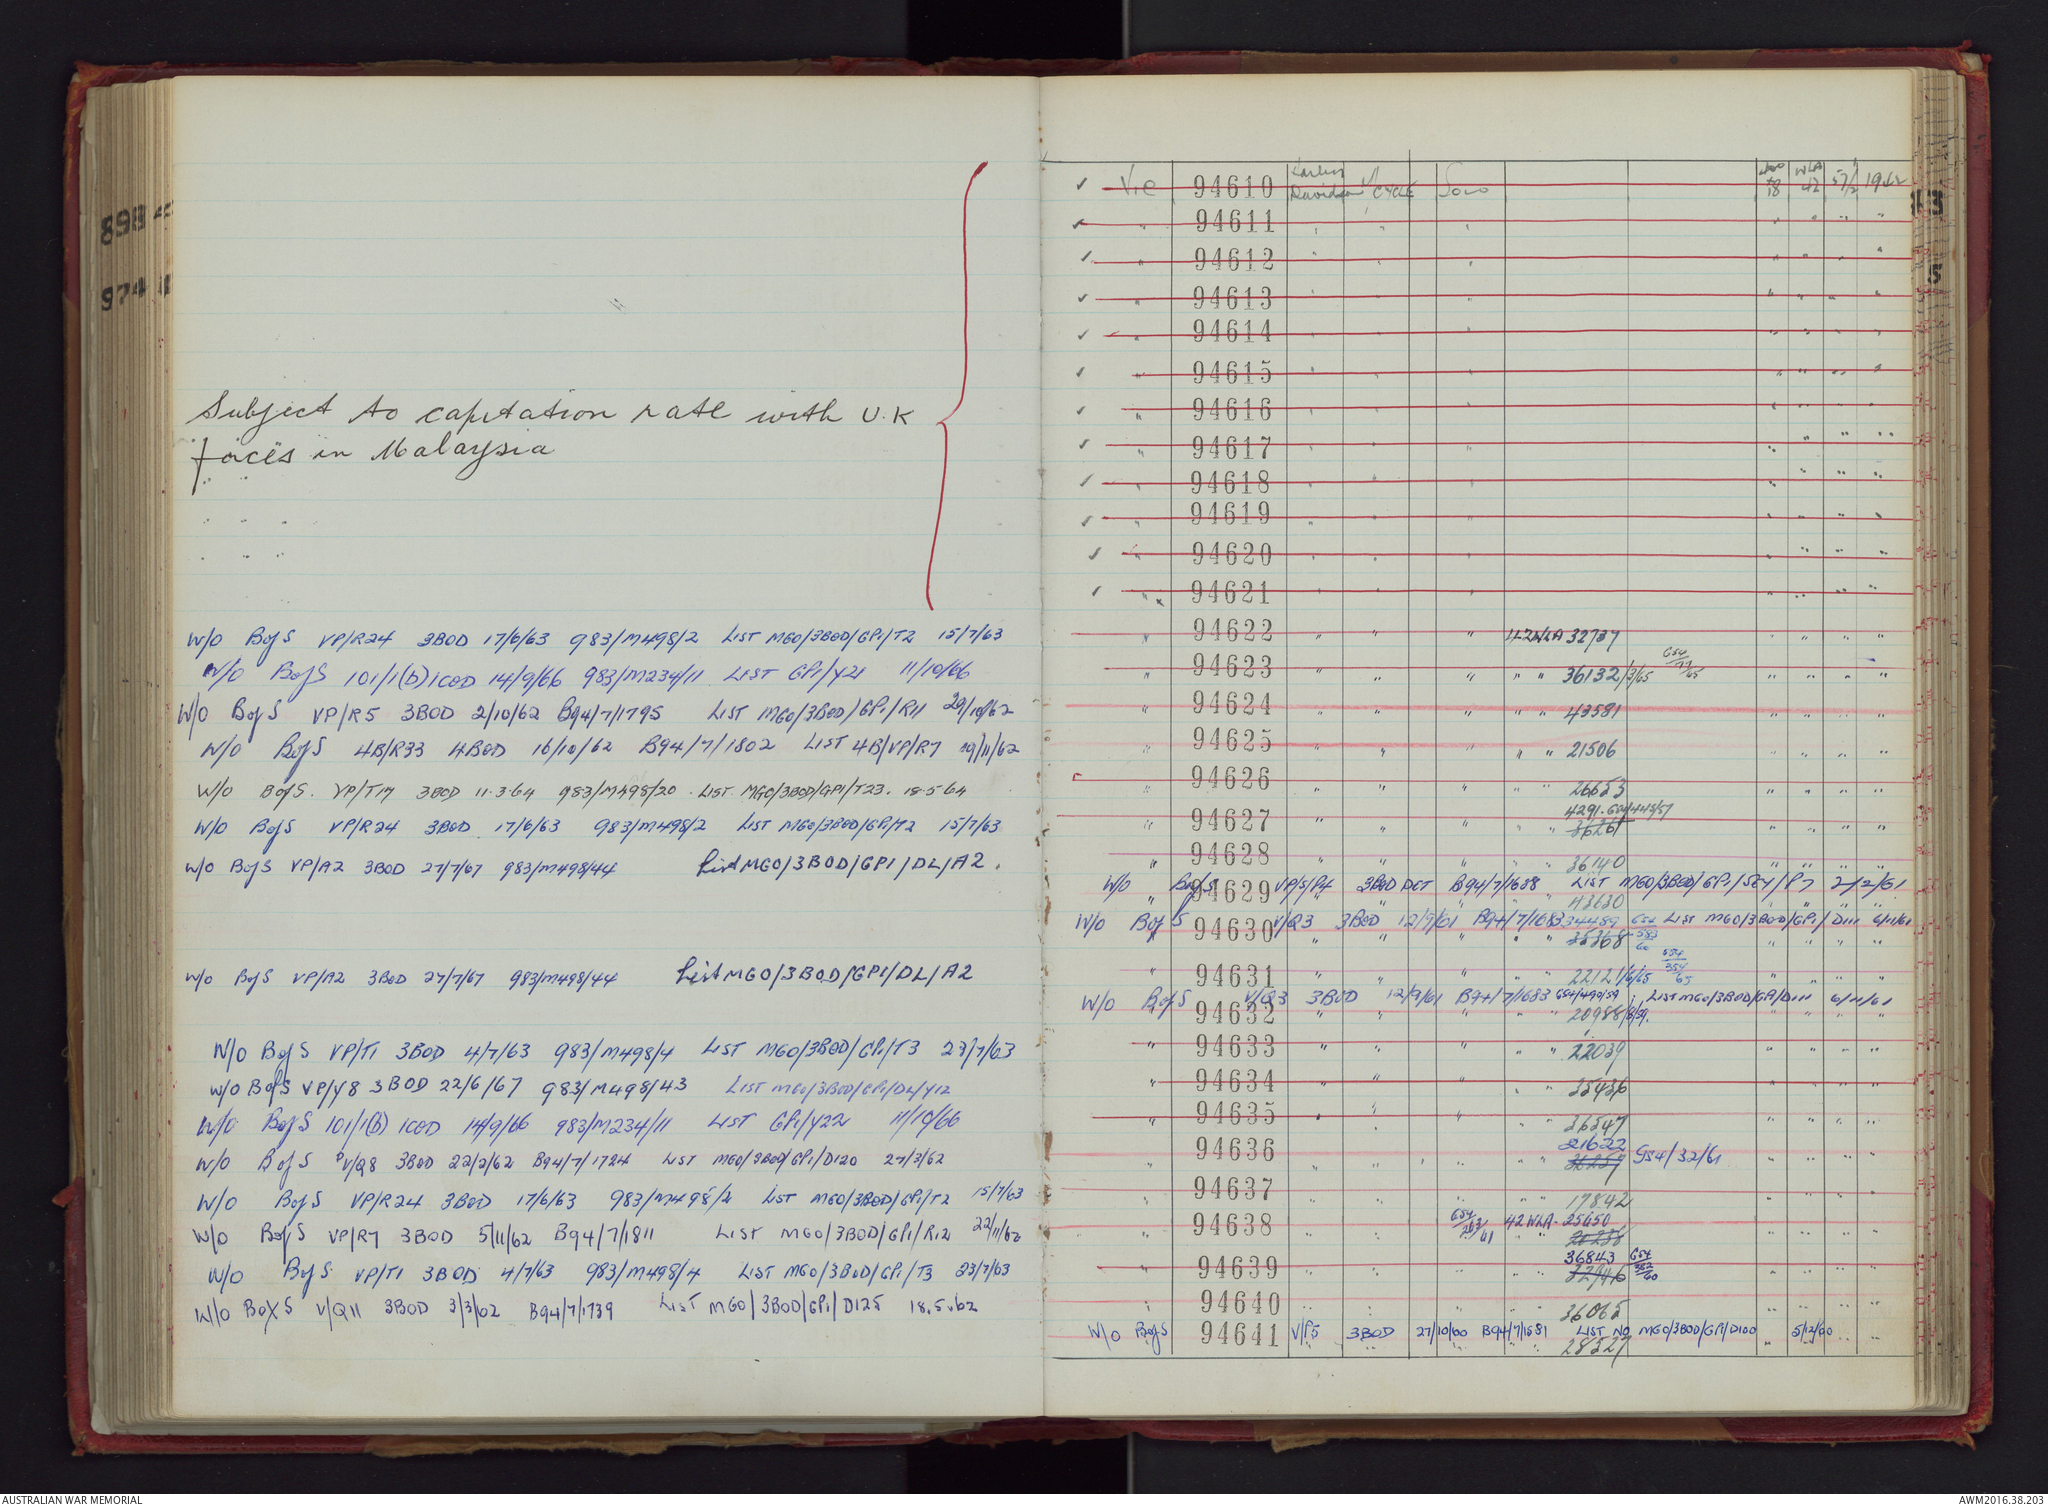 898
974
Subject to capitation rate with U.K
forces in Malaysia
W/O BofS VP/R24 3BOD 17/6/63 983/M498/2 LIST MGO/3BOD/GP1/T2 15/7/63
W/O BofS 101/1(b) 1COD 14/9/66 983/M234/11 LIST GP1/Y21 11/10/66
W/O BofS VP/R5 3BOD 2/10/62 B94/7/1795 LIST MGO/3BOD/GP1/R11 29/10/62
W/O BofS 4B/R33 4BOD 16/10/62 B94/7/1802 LIST 4B/VP/R7 19/11/62
W/O BofS. VP/T17 3BOD 11.3.64 983/M498/20. LIST. MGO/3BOD/GP1/T23. 18.5.64
W/O BofS VP/R24 3BOD 17/6/63 983/M498/2 LIST MGO/3BOD/GP1/T2 15/7/63
W/O BofS VP/A2 3BOD 27/7/67 983/M498/44 List MGO/3BOD/GP1/DL/A2.
W/O BofS VP/A2 3BOD 27/7/67 983/M498/44 List MGO/3BOD/GP1/DL/A2
W/O BofS VP/T1 3BOD 4/7/63 983/M498/4 LIST MGO/3BOD/GP1/T3 23/7/63
W/O BofS VP/Y8 3BOD 22/6/67 983/M498/43 LIST MGO/3BOD/GP1/DL/Y12
W/O BofS 101/1(b) 1COD 14/9/66 983/M234/11 LIST GP1/Y22 11/10/66
W/O BofS V/Q8 3BOD 22/2/62 B94/7/1724 LIST MGO/3BOD/GP1/D120 27/3/62
W/O BofS VP/R24 3BOD 17/6/63 983/M498/2 LIST MGO/3BOD/GP1/T2 15/7/63
W/O BofS VP/R7 3BOD 5/11/62 B94/7/1811 LIST MGO/3BOD/GP1/R12 22/11/62
W/O BofS VP/T1 3BOD 4/7/63 983/M498/4 LIST MGO/3BOD/GP1/T3 23/7/63
W/O BofS V/Q11 3BOD 3/3/62 B94/7/1739 LIST MGO/3BOD/GP1/D125 18.5.62
Vic 94610 Harley Davidson M/CYCLE Solo WLA 42 57/2 1942
94611
94612
94613
94614
94615
94616
94617
94618
94619
94620
94621
94622 " " " 42WLA 32737
94623 " " " " " 36132 /3/65
94624 " " " " " 43581
94625 " " " " 21506
94626 " " " " " 26653
4291
94627 " " " " " 36261
94628 " " " " " 36140
W/O BofS VP/S/P4 3BOD DET B94/7/1688 LIST MGO/3BOD/GP1/SEY/P7 2/2/61
94629 " " " " " 43630
W/O BofS V/Q3 3BOD 12/9/61 B94/7/1683 34489 LIST MGO/3BOD/GP1/D111 6/11/61
94630 " " " " " 35368
94631 " " " " " 22121 /6/65
W/O BofS V/Q3 3BOD 12/9/61 B94/7/1683 G54/490/59 LIST MGO/3BOD/GP1/D111 6/11/61
94632 " " " " " 20988 /8/59.
94633 " " " " " 22039
94634 " " " " 35436
94635 " " " " " 36547
21622 G54/32/61
94636 " " " " " 36257
94637 " " " " " 17842
94638 G54/263/61 42WLA 25650
94639 36843 G54/382/60
94640 36065
W/O BofS 94641 V/P5 3BOD 27/10/60 B94/7/1581 LIST NO MGO/3BOD/GP1/D100 5/12/60
28527
AUSTRALIAN WAR MEMORIAL
AWM2016.38.203